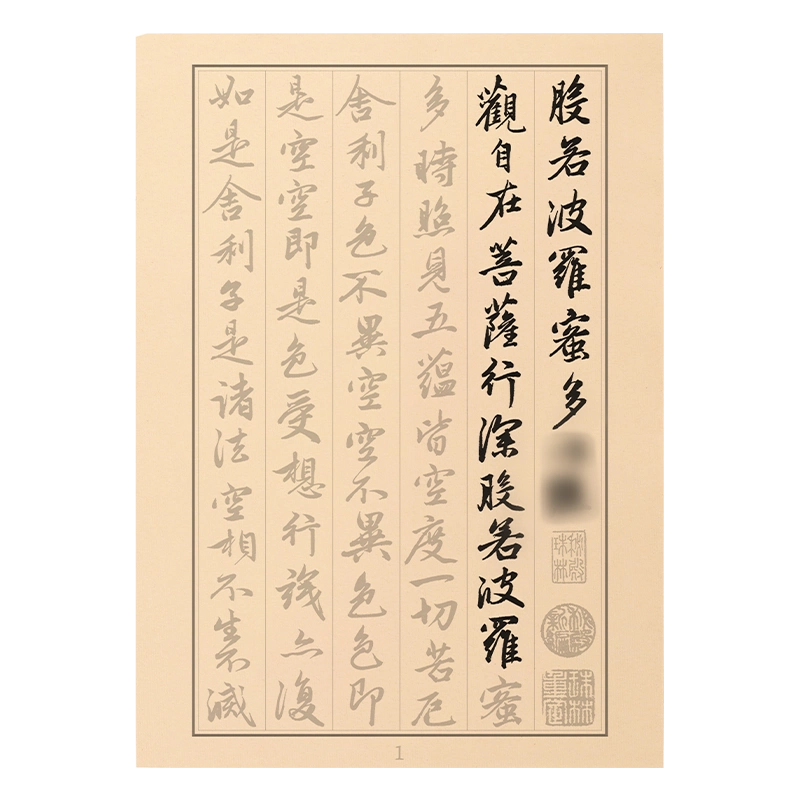 般若波羅蜜多
秘殿珠林
秘殿新編
珠林重定
觀自在菩薩行深般若波羅蜜
多時照見五蘊皆空度一切苦厄
舍利子色不異空空不異色色即
是空空即是色受想行識亦復
如是舍利子是諸法空相不生不滅
1